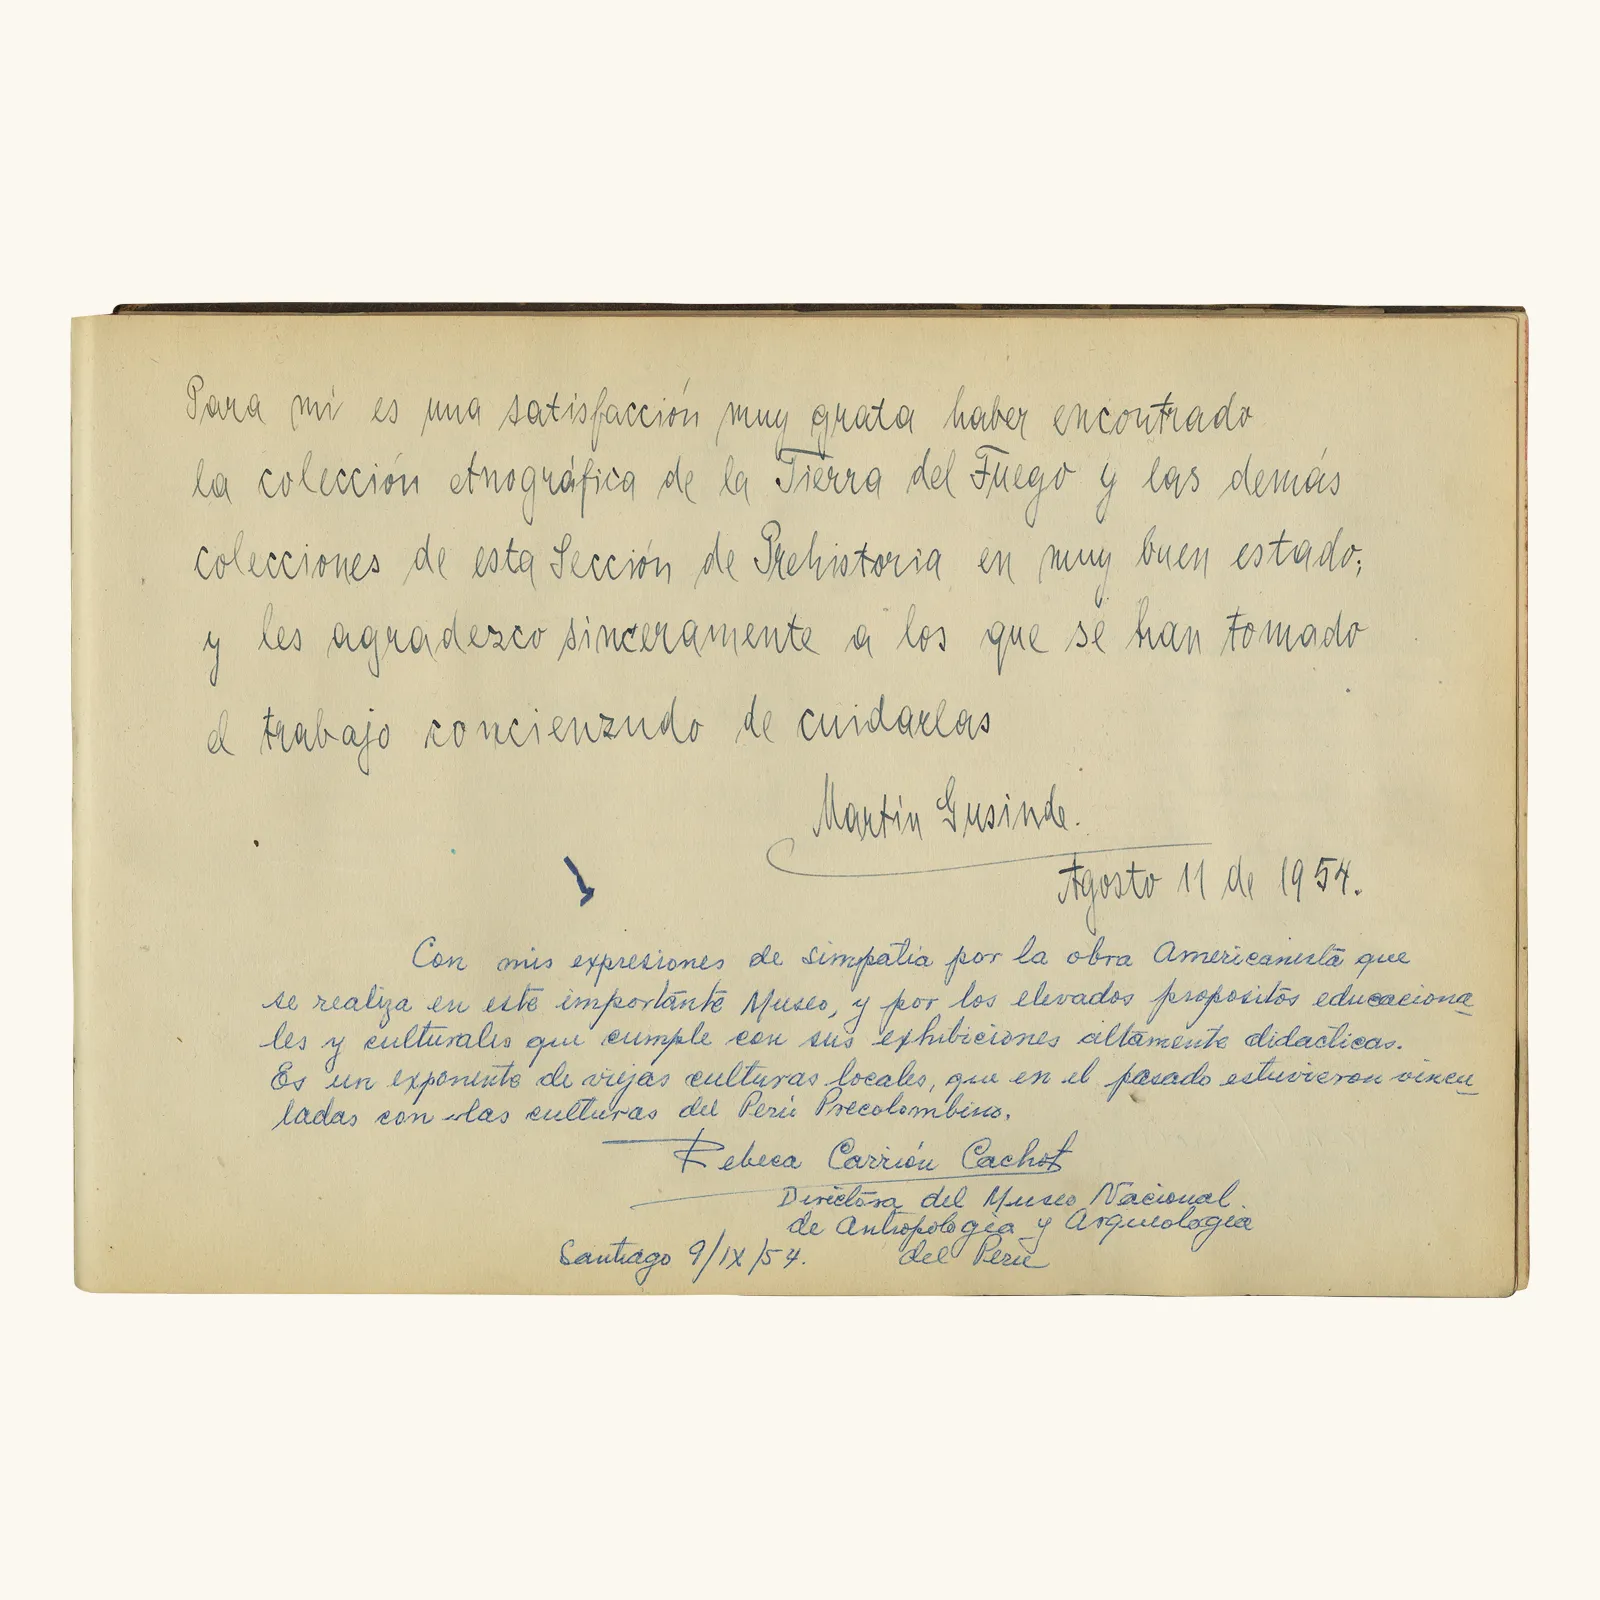 Para mí es una satisfacción muy grata haber encontrado
la colección etnográfica de la Tierra del Fuego y las demás
colecciones de esta Sección de Prehistoria en muy buen estado;
y les agradezco sinceramente a los que se han tomado
el trabajo concienzudo de cuidarlas
Martin Gusinde.
Agosto 11 de 1954.
Con mis expresiones de simpatia por la obra Americanista que
se realiza en este importante Museo, y por los elevados propositos educaciona
les y culturales que cumple con sus exhibiciones altamente didacticas.
Es un exponente de viejas culturas locales, que en el pasado estuvieron vincu
ladas con las culturas del Perú Precolombino.
Rebeca Carrión Cachot
Directora del Museo Nacional
de Antropologia y Arqueologia
Santiago 9/IX/54. del Perú